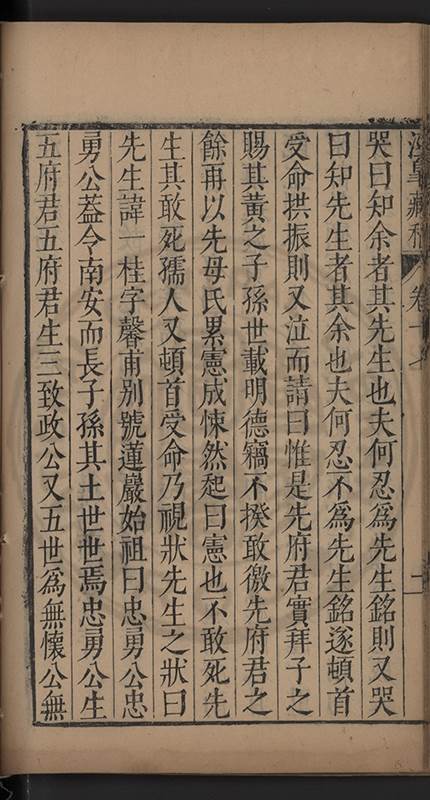 漢皐藏稿 卷十七 十一
哭曰知余者其先生也夫何忍爲先生銘則又哭
曰知先生者其余也夫何忍不爲先生銘遂頓首
受命拱振則又泣而請曰惟是先府君實拜子之
賜其黃之子孫世載明德竊不揆敢徼先府君之
餘再以先母氏累憲成悚然起曰憲也不敢死先
生其敢死孺人又頓首受命乃視狀先生之狀曰
先生諱一桂字馨甫別號蓮巖始祖曰忠勇公忠
勇公蓋令南安而長子孫其土世世焉忠勇公生
五府君五府君生三致政公又五世爲無懷公無